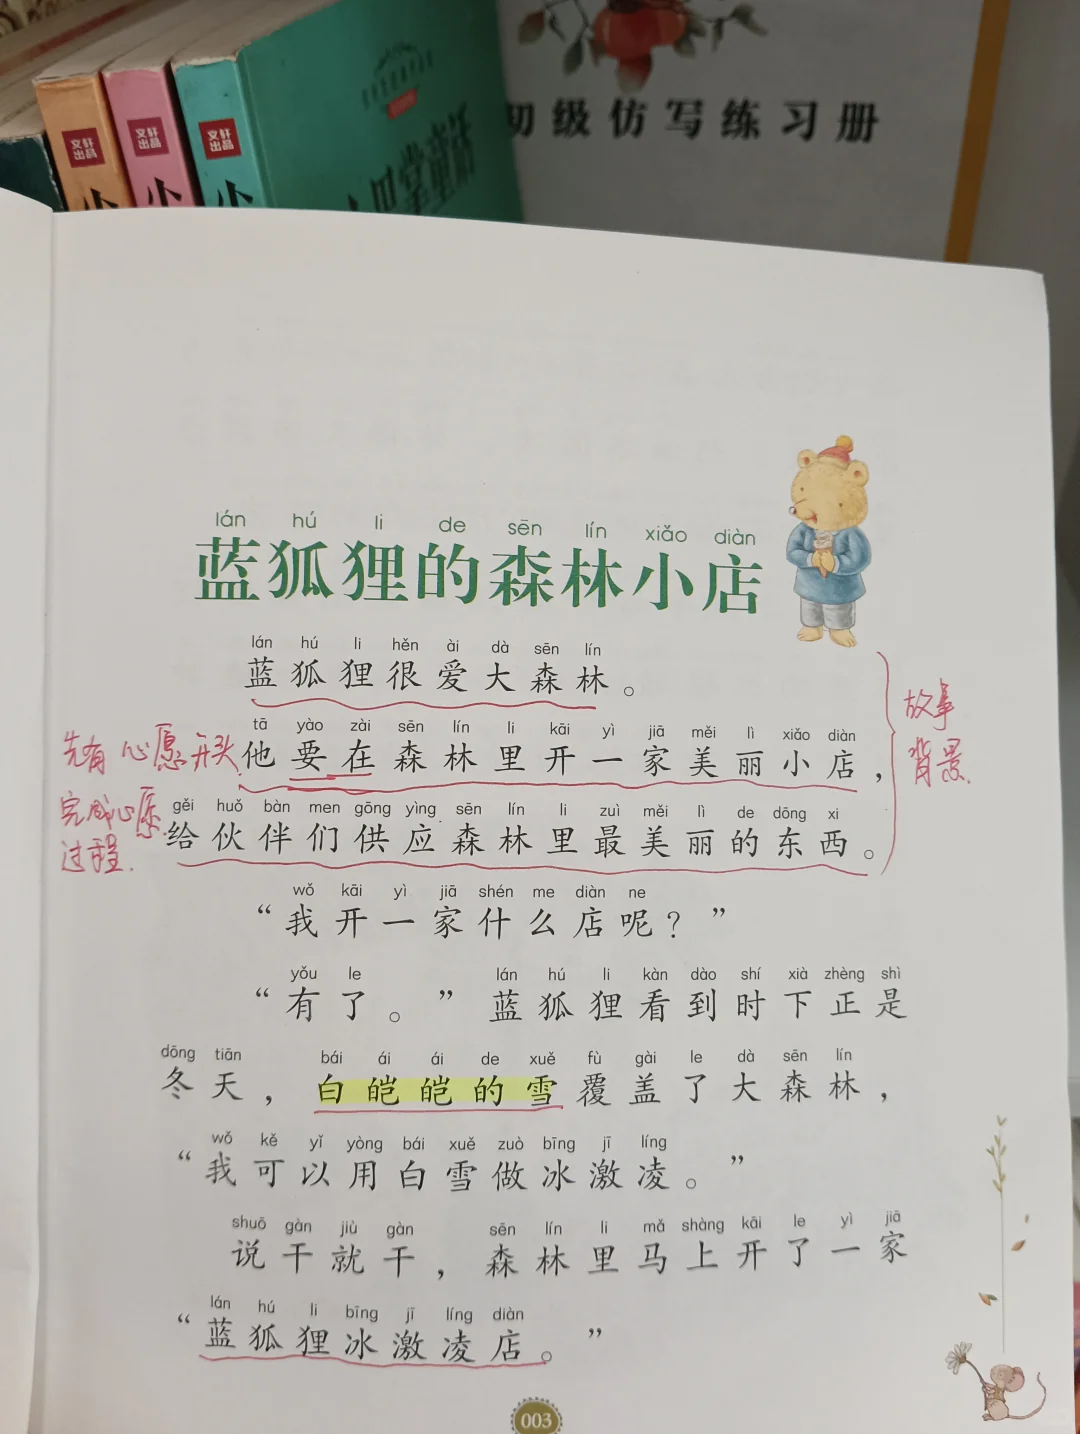 文轩出品
文轩出品
文轩出品
小
小
小
小巴掌童话
初级仿写练习册
lán hú li de sēn lín xiǎo diàn
蓝狐狸的森林小店
lán hú li hěn ài dà sēn lín
蓝狐狸很爱大森林。
tā yào zài sēn lín li kāi yì jiā měi lì xiǎo diàn
他要在森林里开一家美丽小店，
gěi huǒ bàn men gōng yìng sēn lín li zuì měi lì de dōng xi
给伙伴们供应森林里最美丽的东西。
先有心愿开头
完成心愿
过程.
故事
背景
wǒ kāi yì jiā shén me diàn ne
“我开一家什么店呢？”
yǒu le lán hú li kàn dào shí xià zhèng shì
“有了。”蓝狐狸看到时下正是
dōng tiān bái ái ái de xuě fù gài le dà sēn lín
冬天，白皑皑的雪覆盖了大森林，
wǒ kě yǐ yòng bái xuě zuò bīng jī líng
“我可以用白雪做冰激凌。”
shuō gàn jiù gàn sēn lín li mǎ shàng kāi le yì jiā
说干就干，森林里马上开了一家
lán hú li bīng jī líng diàn
“蓝狐狸冰激凌店。”
003